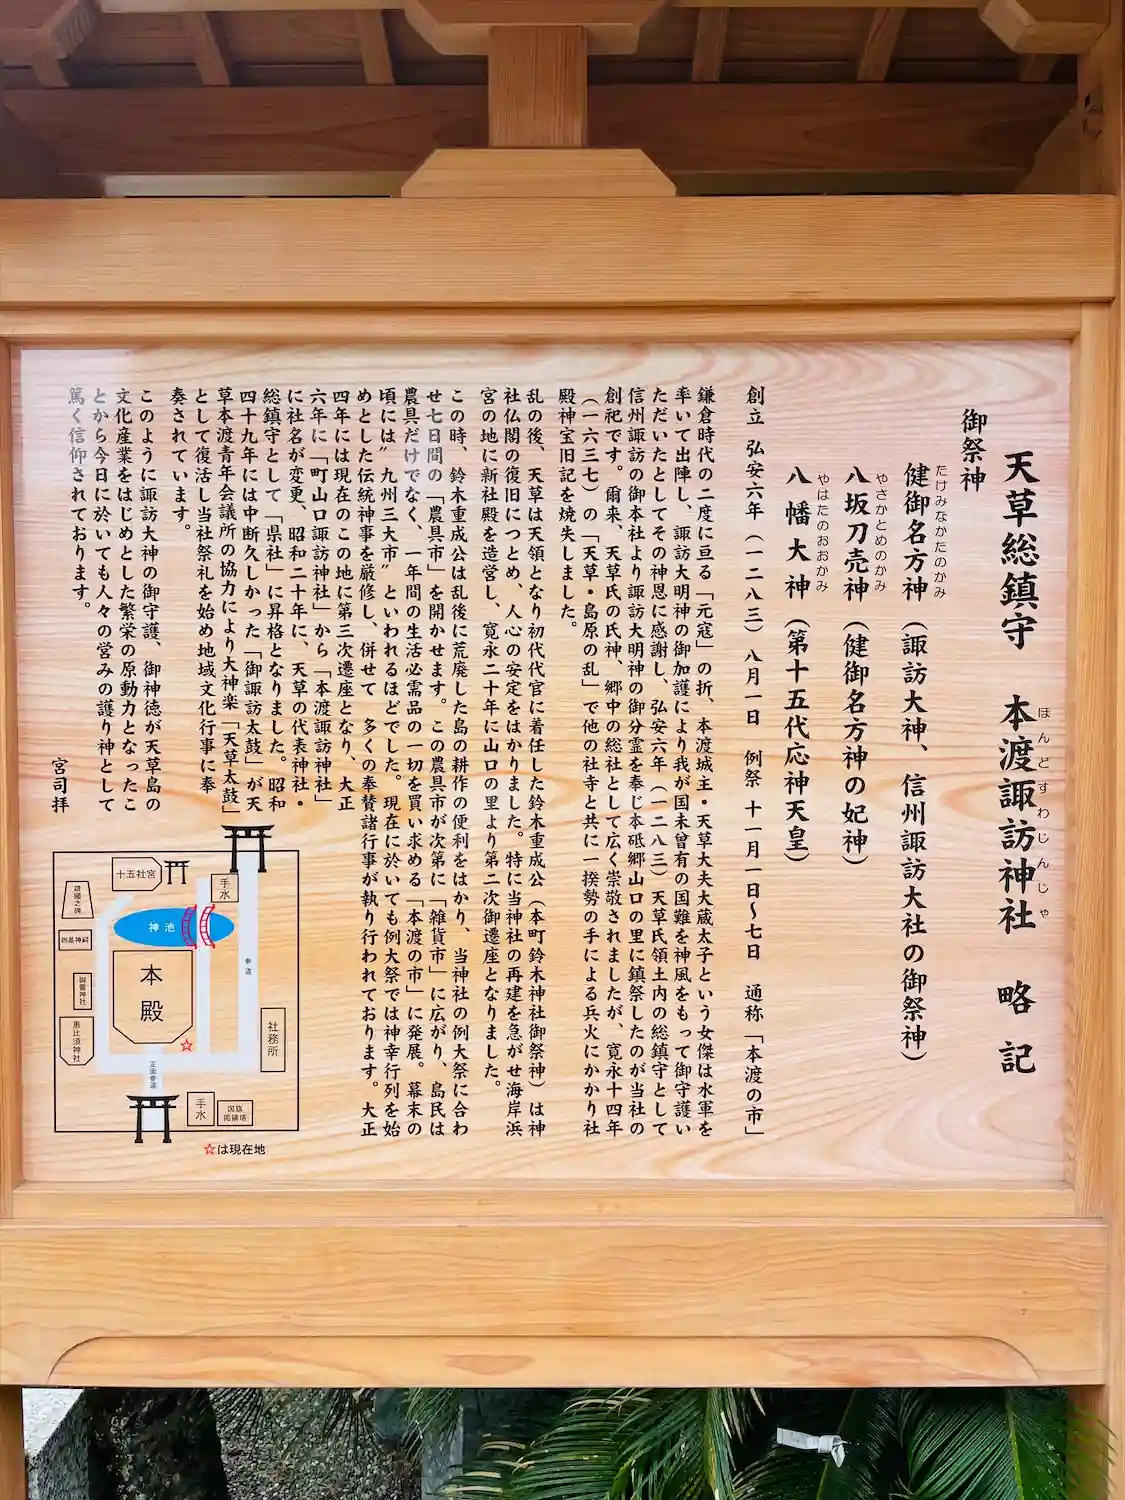 天草総鎮守 本渡諏訪神社 略記
ほんどすわじんじゃ
御祭神
健御名方神（諏訪大神、信州諏訪大社の御祭神）
たけみなかたのかみ
八坂刀売神（健御名方神の妃神）
やさかとめのかみ
八幡大神（第十五代応神天皇）
やはたのおおかみ
創立 弘安六年（一二八三）八月一日 例祭 十一月一日～七日 通称「本渡の市」
鎌倉時代の二度に亘る「元寇」の折、本渡城主・天草大夫大蔵太子という女傑は水軍を
率いて出陣し、諏訪大明神の御加護により我が国未曽有の国難を神風をもって御守護い
ただいたとしてその神恩に感謝し、弘安六年（一二八三）天草氏領土内の総鎮守として
信州諏訪の御本社より諏訪大明神の御分霊を奉じ本砥郷山口の里に鎮祭したのが当社の
創祀です。爾来、天草氏の氏神、郷中の総社として広く崇敬されましたが、寛永十四年
（一六三七）の「天草・島原の乱」で他の社寺と共に一揆勢の手による兵火にかかり社
殿神宝旧記を焼失しました。
乱の後、天草は天領となり初代代官に着任した鈴木重成公（本町鈴木神社御祭神）は神
社仏閣の復旧につとめ、人心の安定をはかりました。特に当神社の再建を急がせ海岸浜
宮の地に新社殿を造営し、寛永二十年に山口の里より第二次御遷座となりました。
この時、鈴木重成公は乱後に荒廃した島の耕作の便利をはかり、当神社の例大祭に合わ
せ七日間の「農具市」を開かせます。この農具市が次第に「雑貨市」に広がり、島民は
農具だけでなく、一年間の生活必需品の一切を買い求める「本渡の市」に発展。幕末の
頃には〝九州三大市〟といわれるほどでした。現在に於いても例大祭では神幸行列を始
めとした伝統神事を厳修し、併せて 多くの奉賛諸行事が執り行われております。大正
四年には現在のこの地に第三次遷座となり、大正
六年に「町山口諏訪神社」から「本渡諏訪神社」
に社名が変更、昭和二十年に、天草の代表神社・
総鎮守として「県社」に昇格となりました。昭和
四十九年には中断久しかった「御諏訪太鼓」が天
草本渡青年会議所の協力により大神楽「天草太鼓」
として復活し当社祭礼を始め地域文化行事に奉
奏されています。
このように諏訪大神の御守護、御神徳が天草島の
文化産業をはじめとした繁栄の原動力となったこ
とから今日に於いても人々の営みの護り神として
篤く信仰されております。
宮司拝
十五社宮
手水
神池
本殿
参道
御霊神社
恵比須神社
社務所
正面参道
手水
国旗
掲揚塔
☆は現在地